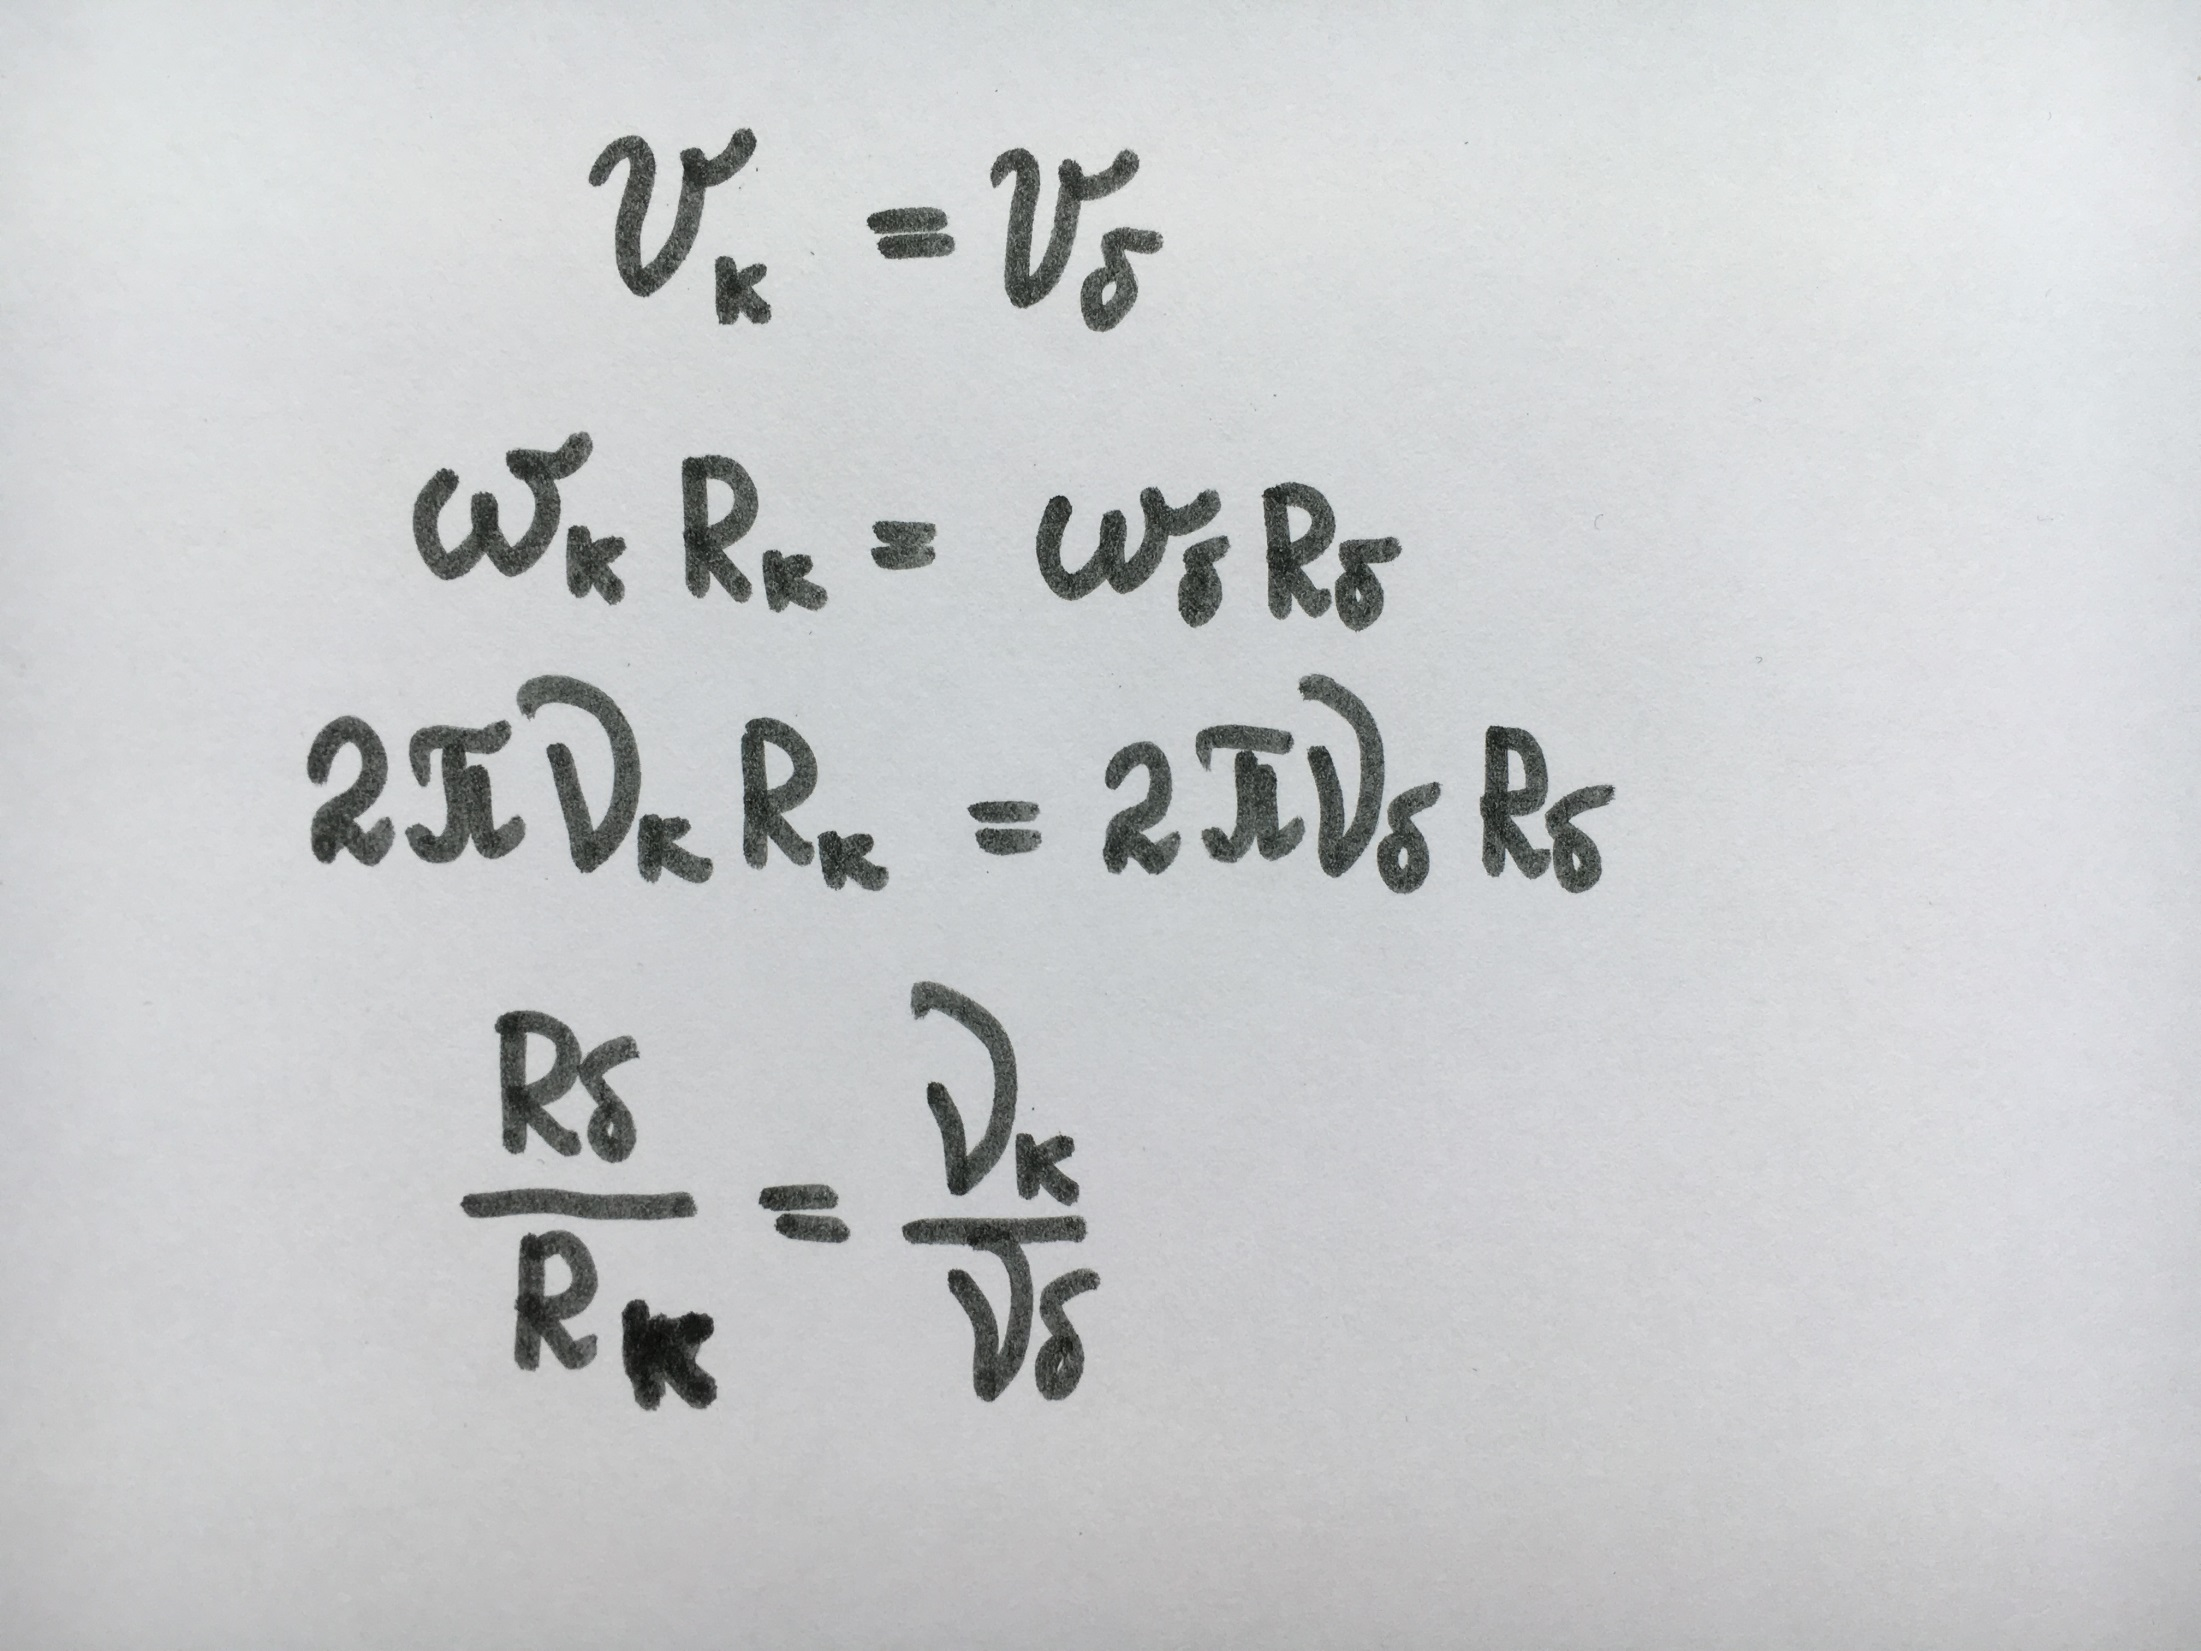 v_к = v_б
ω_к R_к = ω_б R_б
2πν_к R_к = 2πν_б R_б
R_б / R_к = ν_к / ν_б